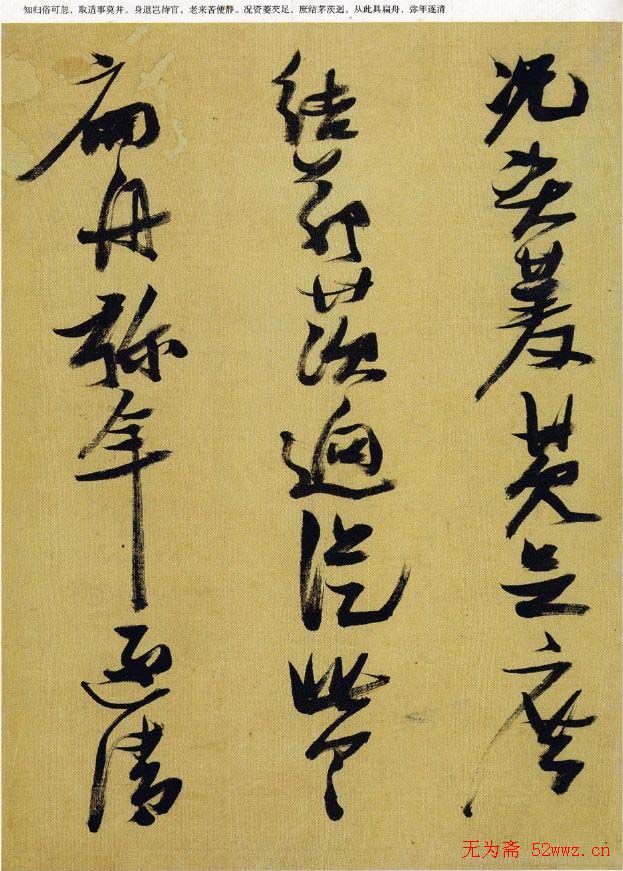 知归俗可忽，取适事莫并。身退岂待官，老来苦便静。况资菱芡足，庶结茅茨迥。从此具扁舟，弥年逐清
況資菱芡足庶
結茅茨迥從此具
扁舟弥年逐清
无为斋 52wwz.cn